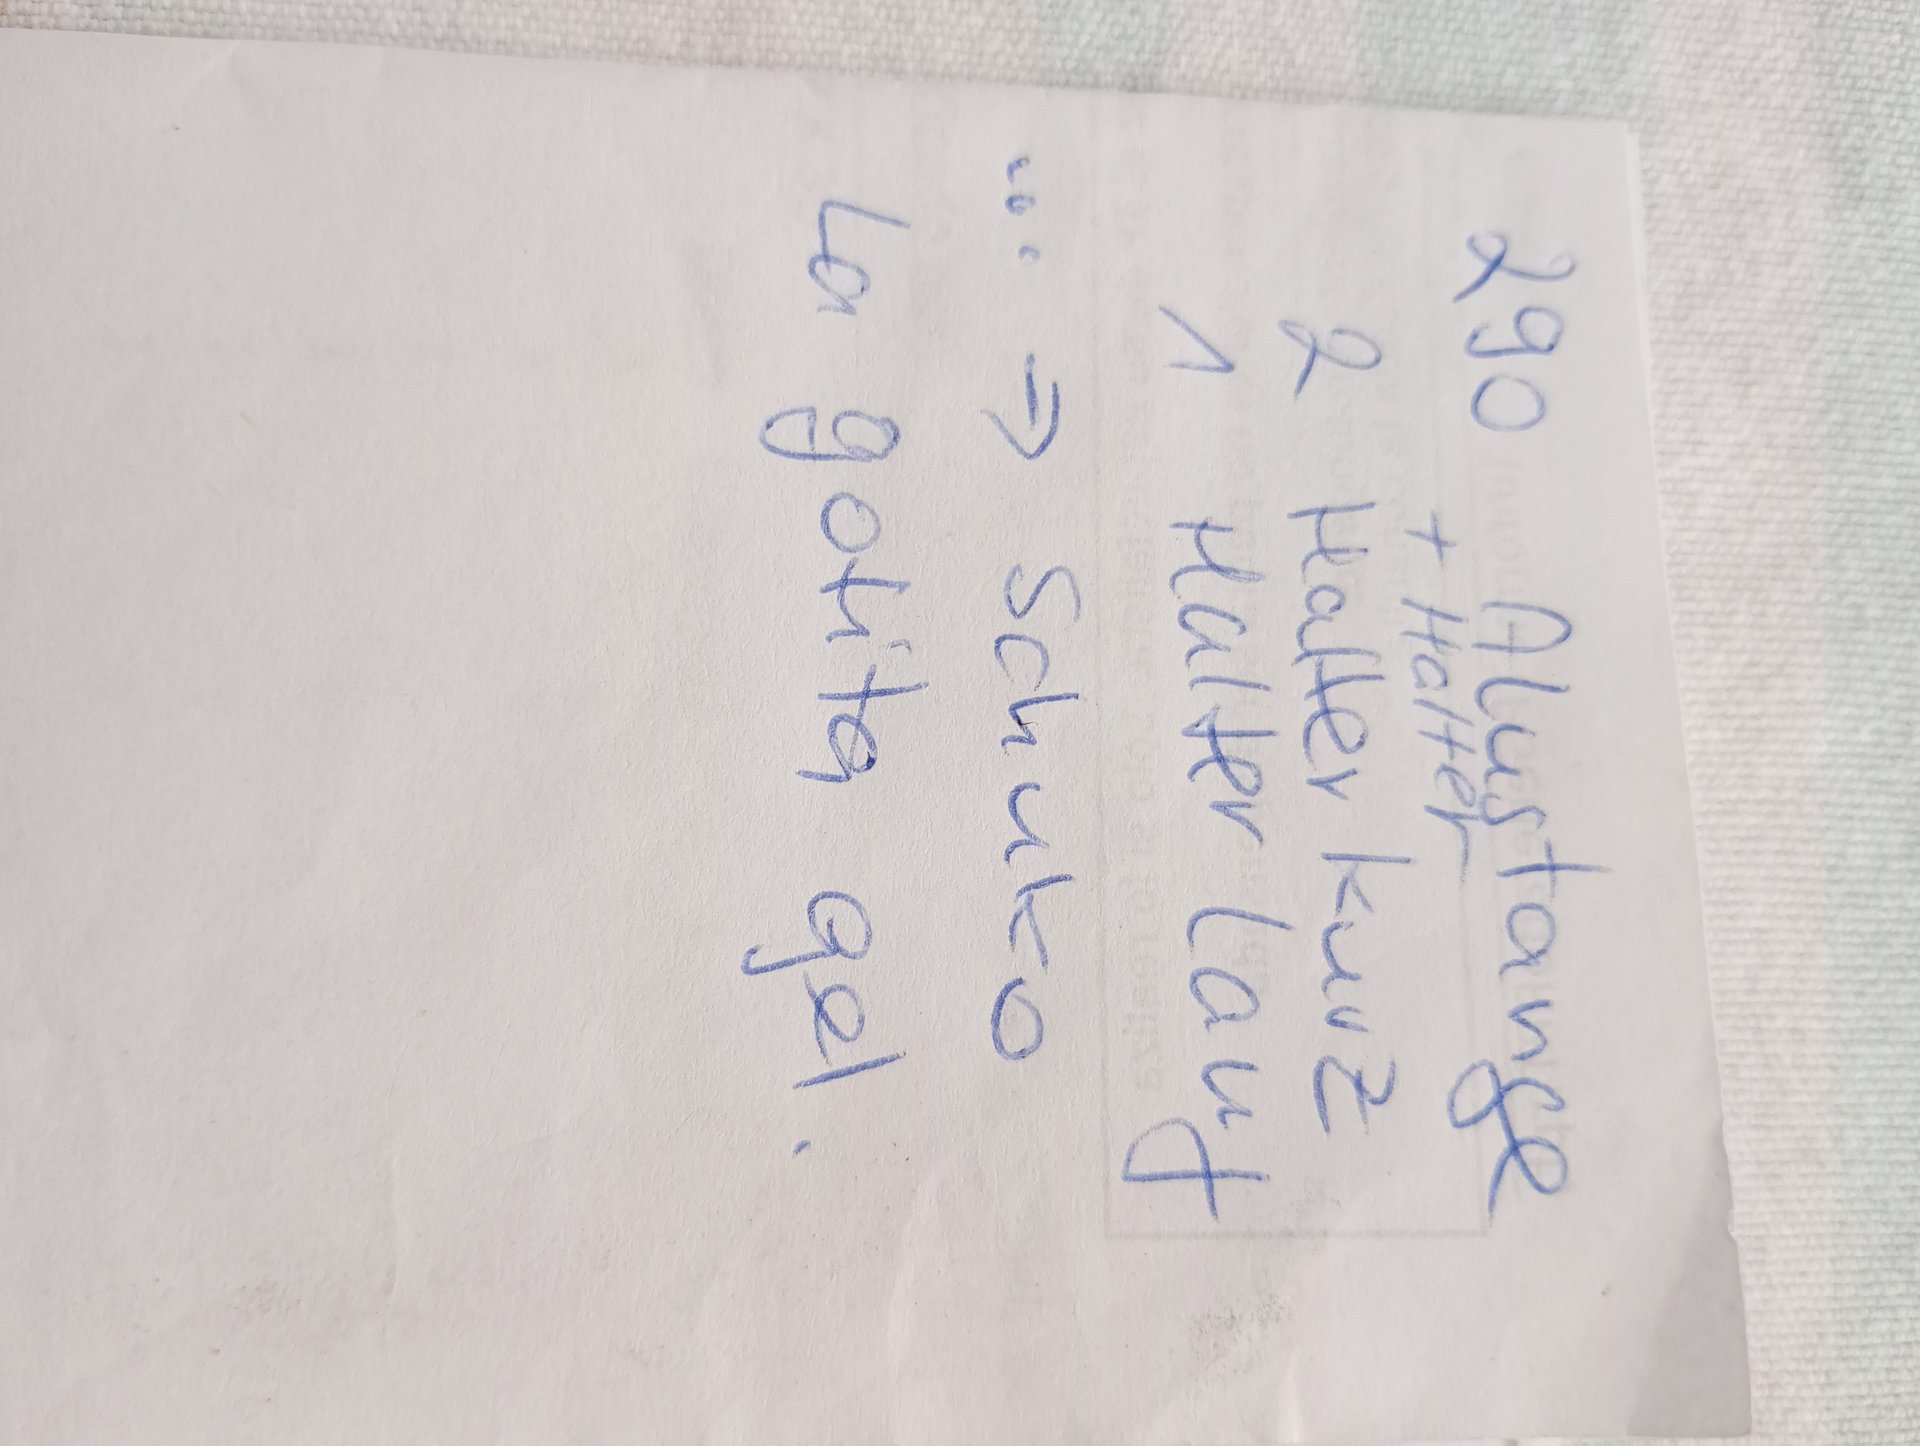 290 Alustange
+ Halter
2 Halter kurz
1 Halter lang
... → Schuko
La gorita gel.